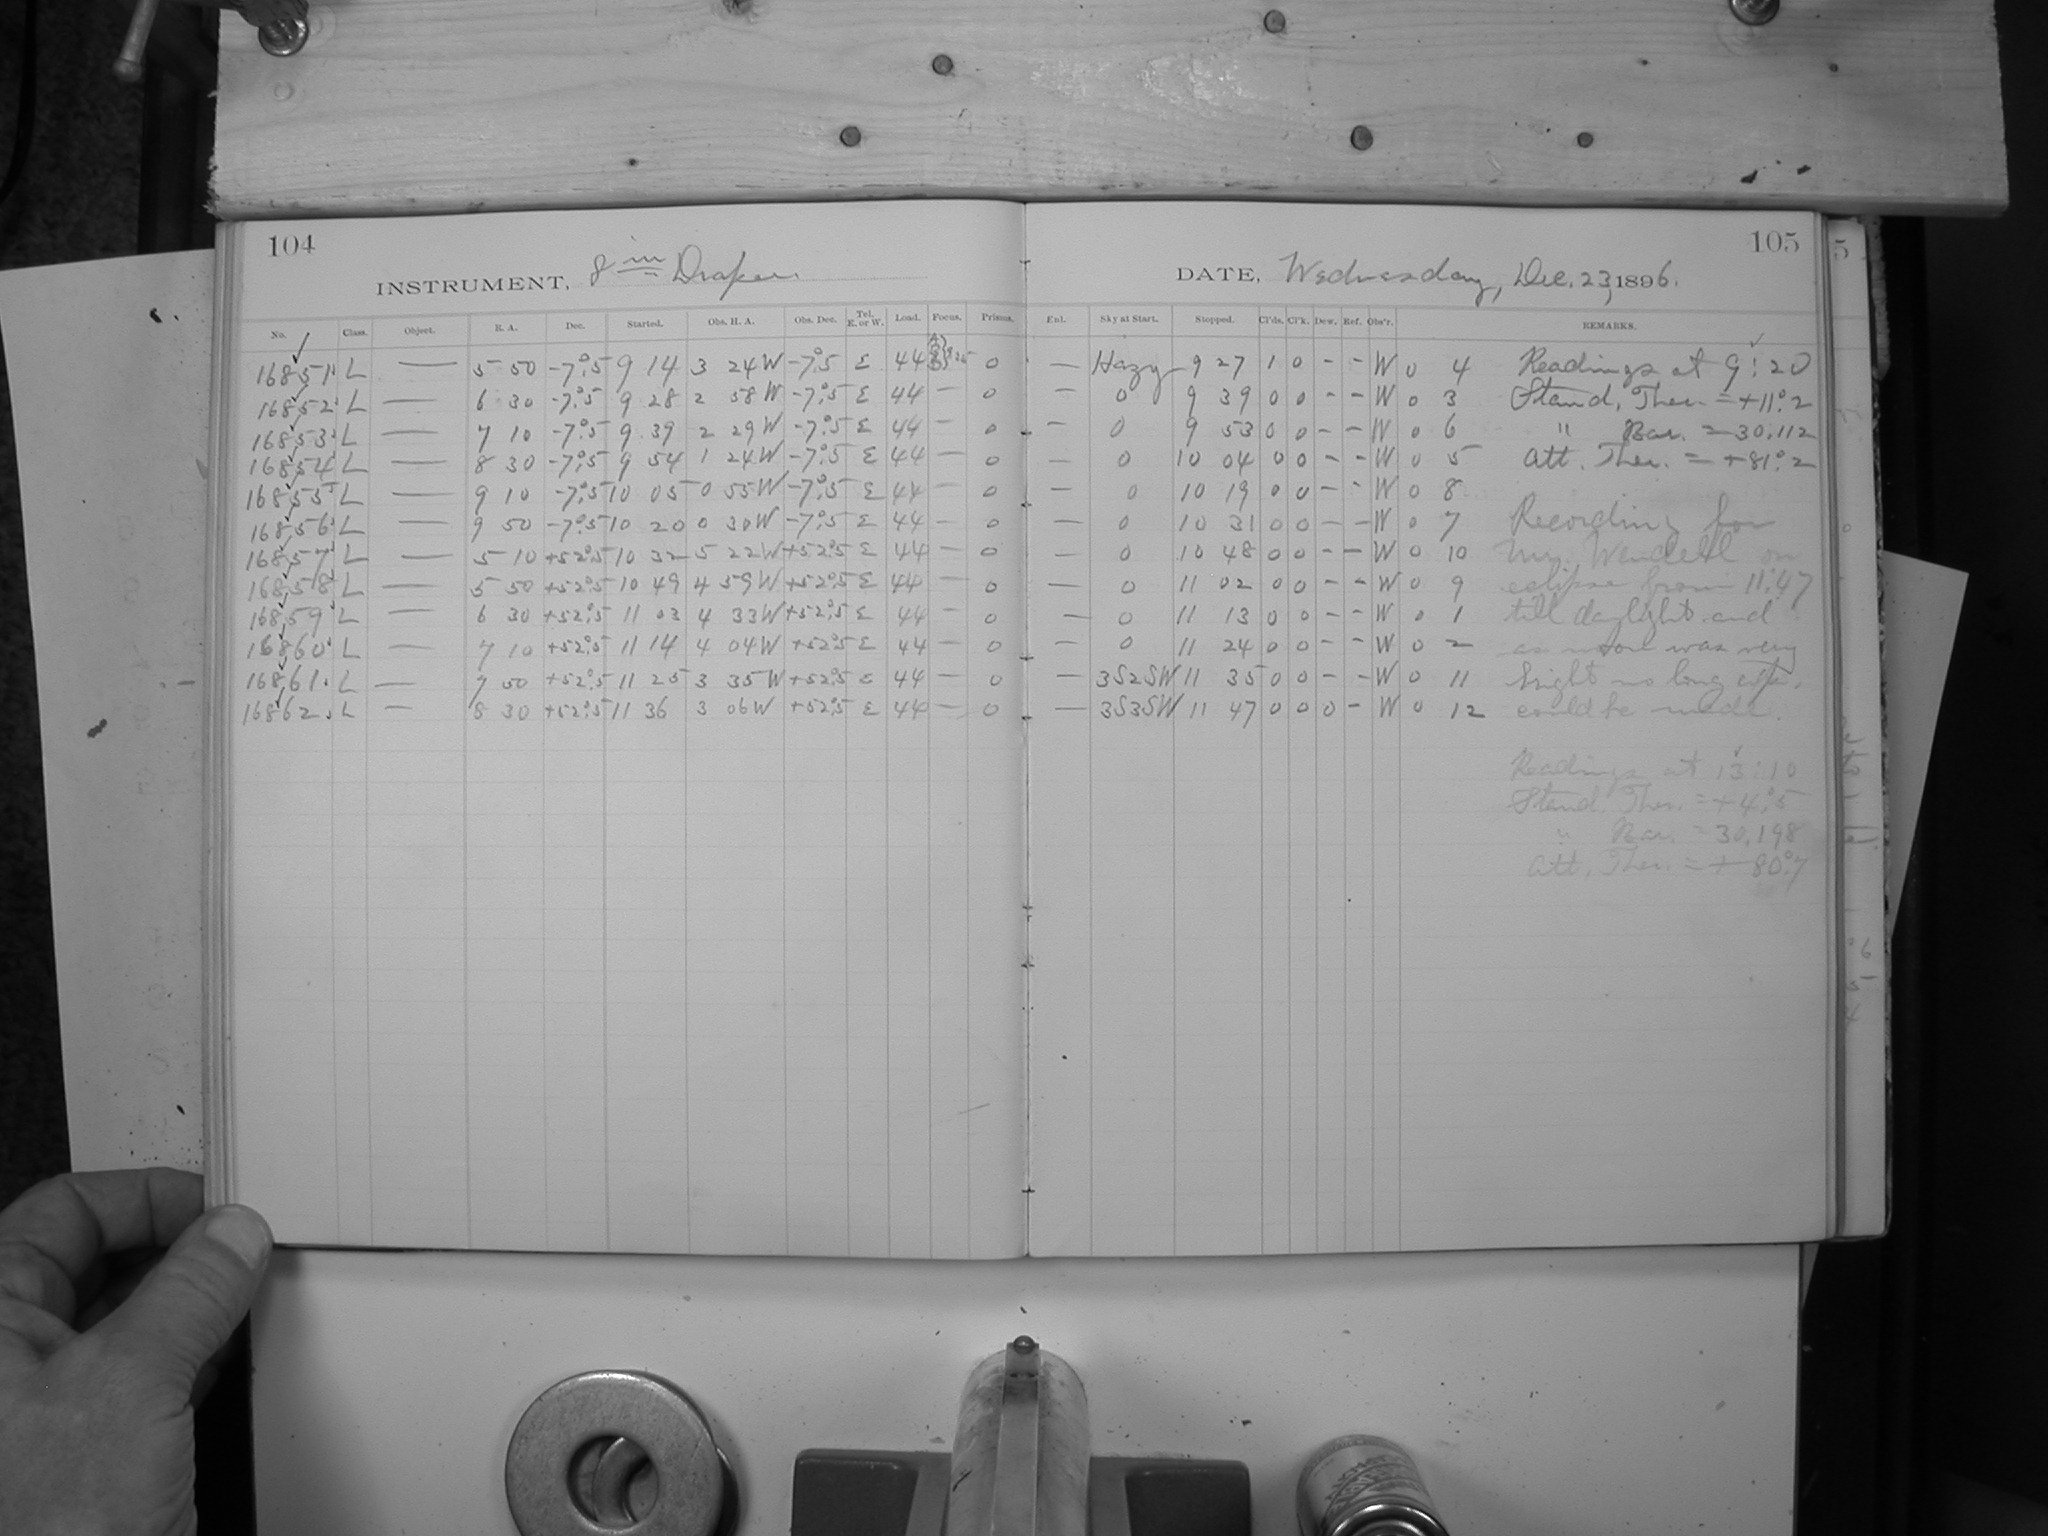 104
INSTRUMENT, 8 in Draper.
No. Class. Object. R. A. Dec. Started. Obs. H. A. Obs. Dec. Tel. E. or W. Load. Focus. Prisms.
16851 L — 5 50 -7°.5 9 14 3 24W -7°.5 E 44 0
16852 L — 6 30 -7°.5 9 28 2 58W -7°.5 E 44 — 0
16853 L — 7 10 -7°.5 9 39 2 29W -7°.5 E 44 — 0
16854 L — 8 30 -7°.5 9 54 1 24W -7°.5 E 44 — 0
16855 L — 9 10 -7°.5 10 05 0 55W -7°.5 E 44 — 0
16856 L — 9 50 -7°.5 10 20 0 30W -7°.5 E 44 — 0
16857 L — 5 10 +52°.5 10 32 5 22W +52°.5 E 44 — 0
16858 L — 5 50 +52°.5 10 49 4 59W +52°.5 E 44 — 0
16859 L — 6 30 +52°.5 11 03 4 33W +52°.5 E 44 — 0
16860 L — 7 10 +52°.5 11 14 4 04W +52°.5 E 44 — 0
16861 L — 7 50 +52°.5 11 25 3 35W +52°.5 E 44 — 0
16862 L — 8 30 +52°.5 11 36 3 06W +52°.5 E 44 — 0
105
DATE, Wednesday, Dec. 23, 1896.
Enl. Sky at Start. Stopped. Cl'ds. Cl'k. Dew. Ref. Obs'r. REMARKS.
— Hazy 9 27 1 0 - - W 0 4 Readings at 9:20
— 0 9 39 0 0 - - W 0 3 Stand. Ther. = +11°.2
— 0 9 53 0 0 - - W 0 6 " Bar. = 30.112
— 0 10 04 0 0 - - W 0 5 Att. Ther. = +81°.2
— 0 10 19 0 0 - - W 0 8
— 0 10 31 0 0 - - W 0 7 Recording for
— 0 10 48 0 0 - - W 0 10 Mr. Wendell on
— 0 11 02 0 0 - - W 0 9 eclipse from 11:47
— 0 11 13 0 0 - - W 0 1 till daylight and
— 0 11 24 0 0 - - W 0 2 as moon was very
— 3S2SW 11 35 0 0 - - W 0 11 bright no long exp.
— 3S3SW 11 47 0 0 0 - W 0 12 could be made.
Readings at 13:10
Stand. Ther. = +4°.5
" Bar. = 30.198
Att. Ther. = +80°.7